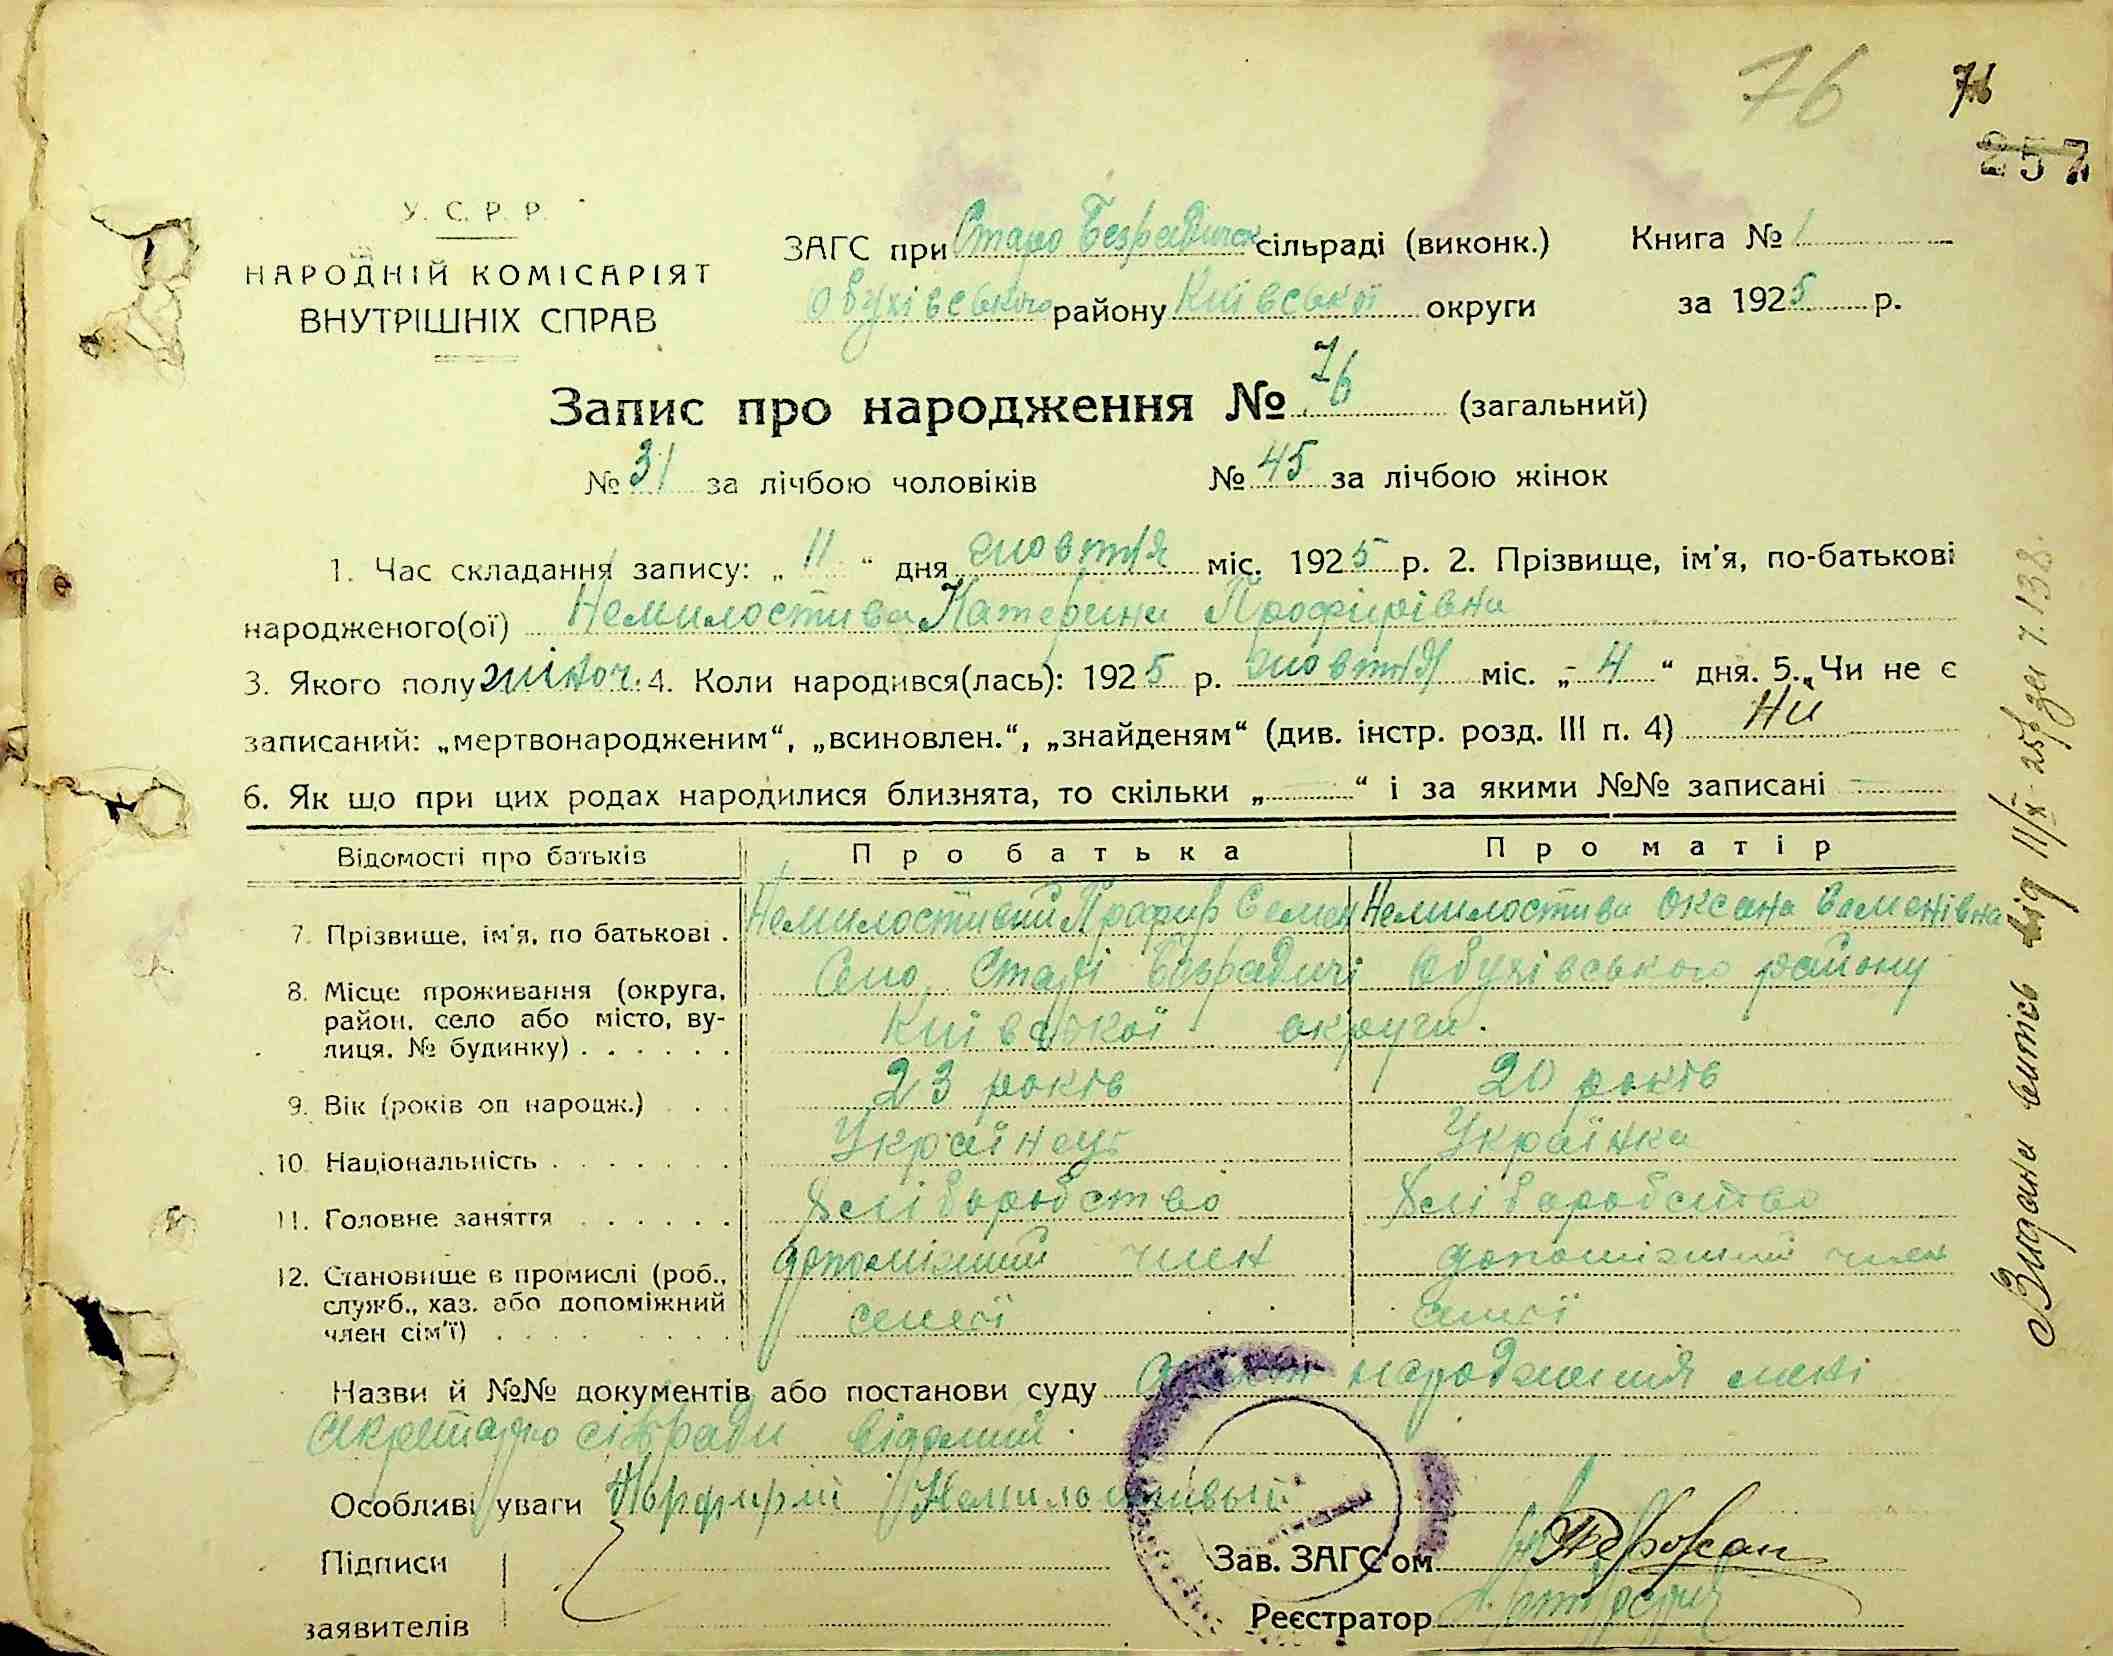 76
76
257
У. С. Р. Р.
НАРОДНІЙ КОМІСАРІЯТ
ВНУТРІШНІХ СПРАВ
ЗАГС при Старо Безрадичск сільраді (виконк.) Книга № 1
Обухівського району Київської округи за 1925 р.
Запис про народження № 76 (загальний)
№ 31 за лічбою чоловіків № 45 за лічбою жінок
1. Час складання запису: „ 11 “ дня жовтня міс. 1925 р. 2. Прізвище, ім'я, по-батькові
народженого(ої) Немилостива Катерина Профирівна
3. Якого полу жіноч. 4. Коли народився(лась): 1925 р. жовтня міс. „ 4 “ дня. 5. Чи не є
записаний: „мертвонародженим“, „всиновлен.“, „знайденям“ (див. інстр. розд. III п. 4) Ни
6. Як що при цих родах народилися близнята, то скільки „ — “ і за якими №№ записані —
Відомості про батьків Про батька Про матір
7. Прізвище, ім'я, по батькові . Немилостивий Профир Семен Немилостива Оксана Семенівна
8. Місце проживання (округа, район, село або місто, вулиця, № будинку) . . . . . . Село Старі Безрадичі Обухівського району
Київської округи.
9. Вік (років од народж.) . . 23 років 20 років
10. Національність . . . . . . . Українець Українка
11. Головне заняття . . . . . . Хліборобство Хліборобство
12. Становище в промислі (роб., служб., хаз. або допоміжний член сім'ї) . . . . . . . . допоміжний член допоміжний член
семєї семєї
Назви й №№ документів або постанови суду народження мені
секретарю сільради відомий.
Особливі уваги Порфирий Немилостивый
Підписи
заявителів
Зав. ЗАГС'ом
Реєстратор
Видана витяь від 11/X-25р за ч. 138.